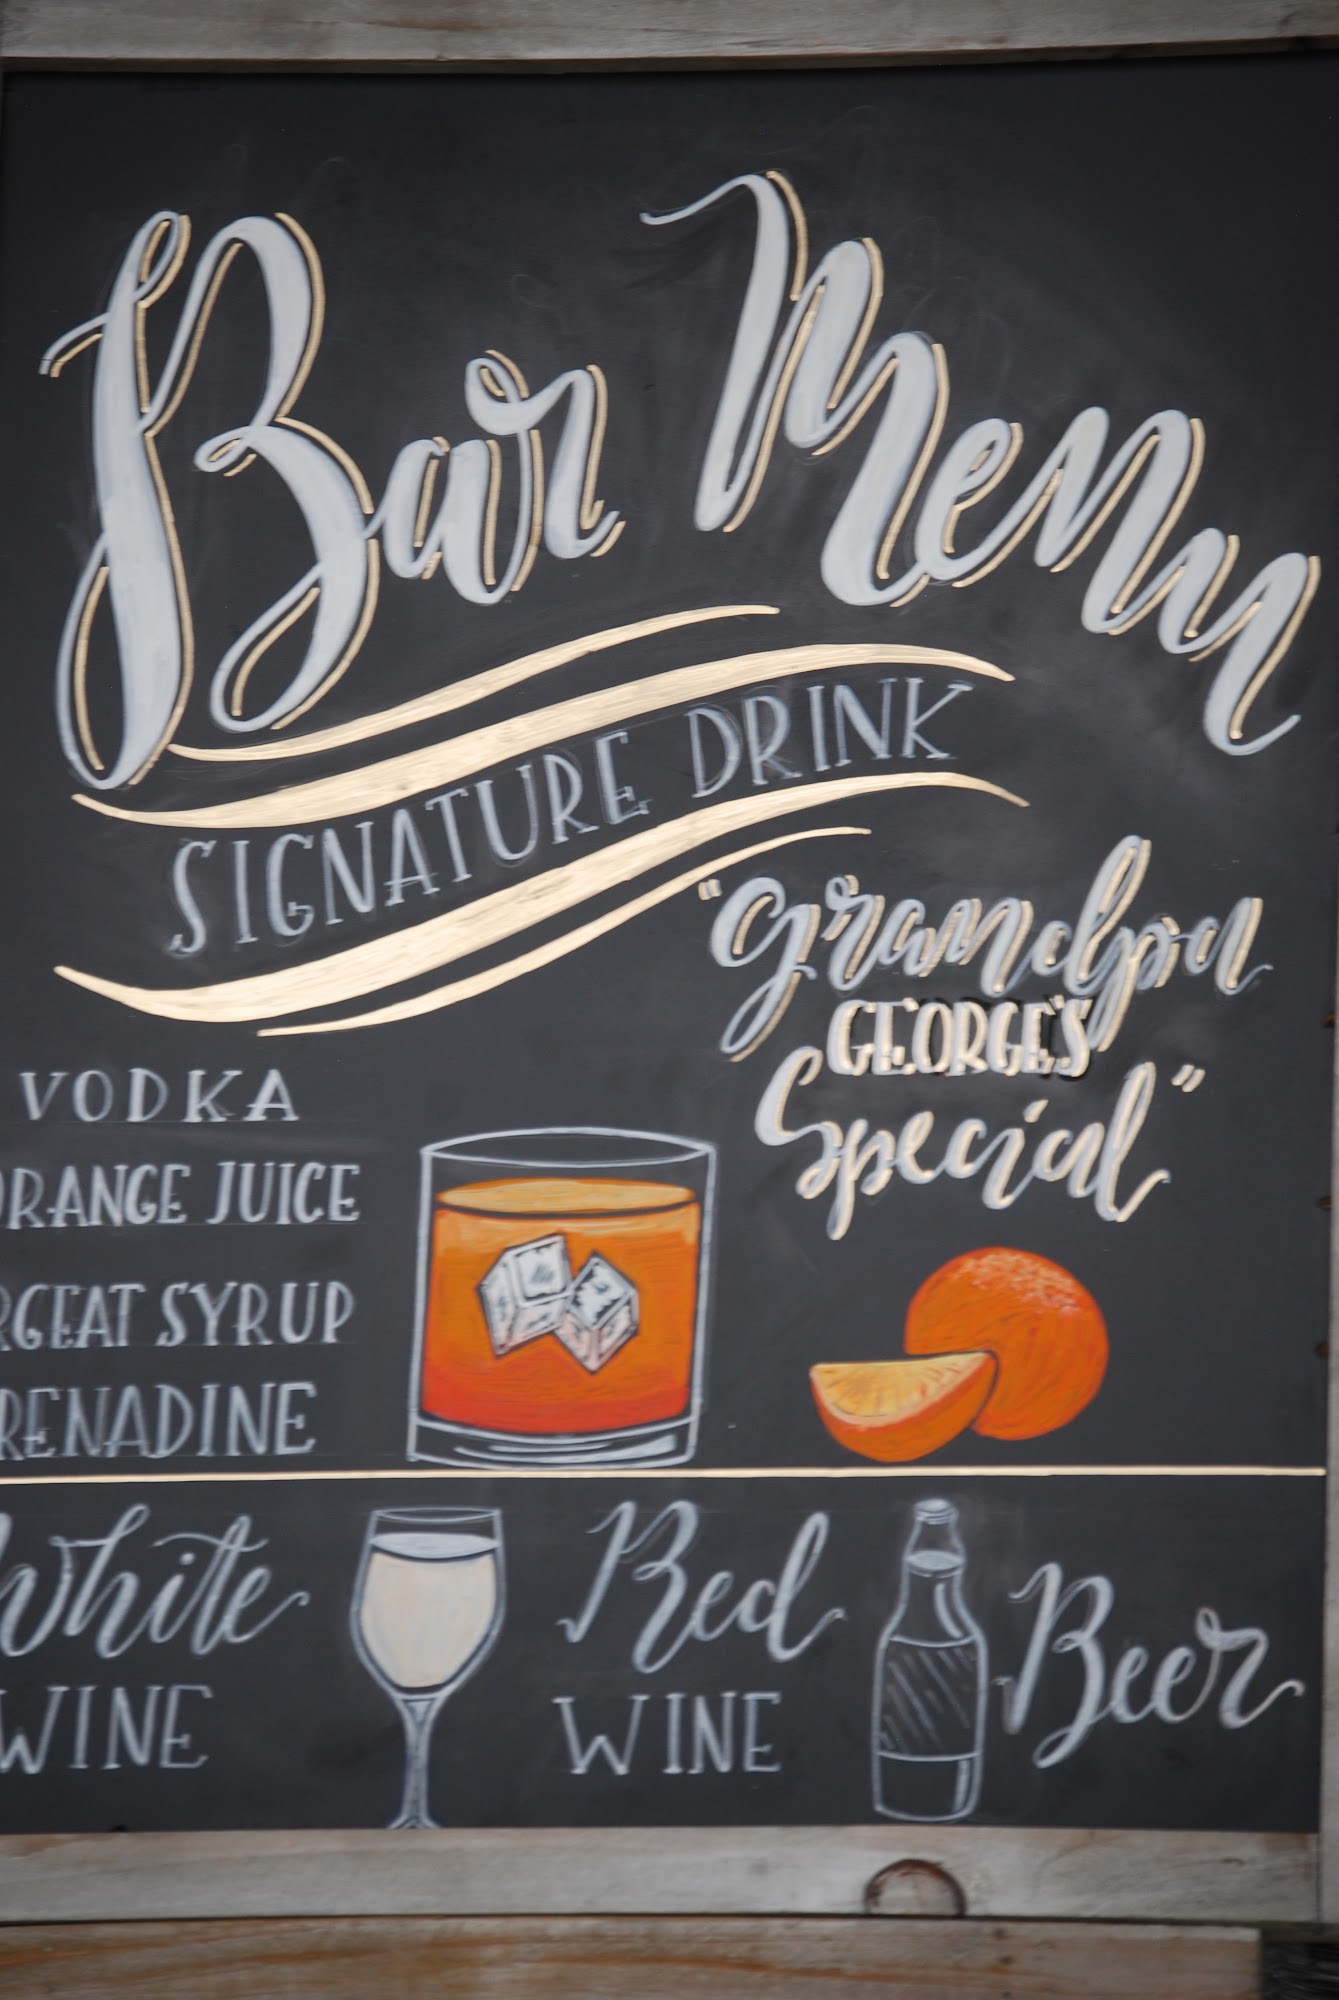 Bar Menu
SIGNATURE DRINK
"Grandpa
GEORGE'S
Special"
VODKA
ORANGE JUICE
RGEAT SYRUP
RENADINE
White
WINE
Red
WINE
Beer